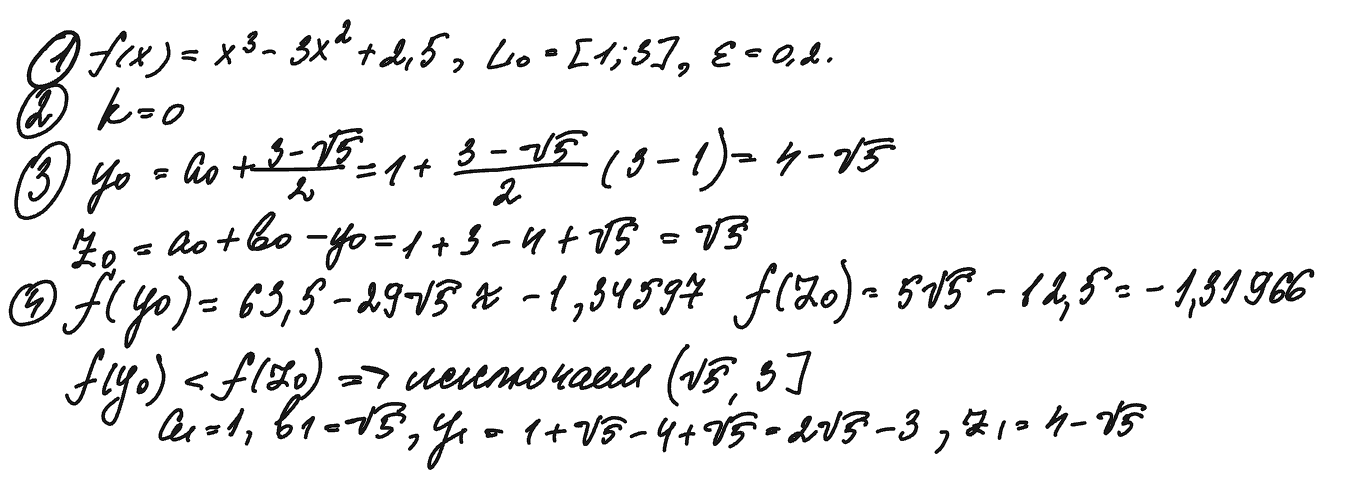 ① f(x) = x³ - 3x² + 2,5, L₀ = [1; 3], ε = 0,2.
② k = 0
③ y₀ = a₀ + (3-√5)/2 = 1 + (3-√5)/2 (3-1) = 4 - √5
z₀ = a₀ + b₀ - y₀ = 1 + 3 - 4 + √5 = √5
④ f(y₀) = 63,5 - 29√5 ≈ -1,34597 f(z₀) = 5√5 - 12,5 = -1,31966
f(y₀) < f(z₀) => исключаем (√5, 3]
a₁ = 1, b₁ = √5, y₁ = 1 + √5 - 4 + √5 = 2√5 - 3, z₁ = 4 - √5